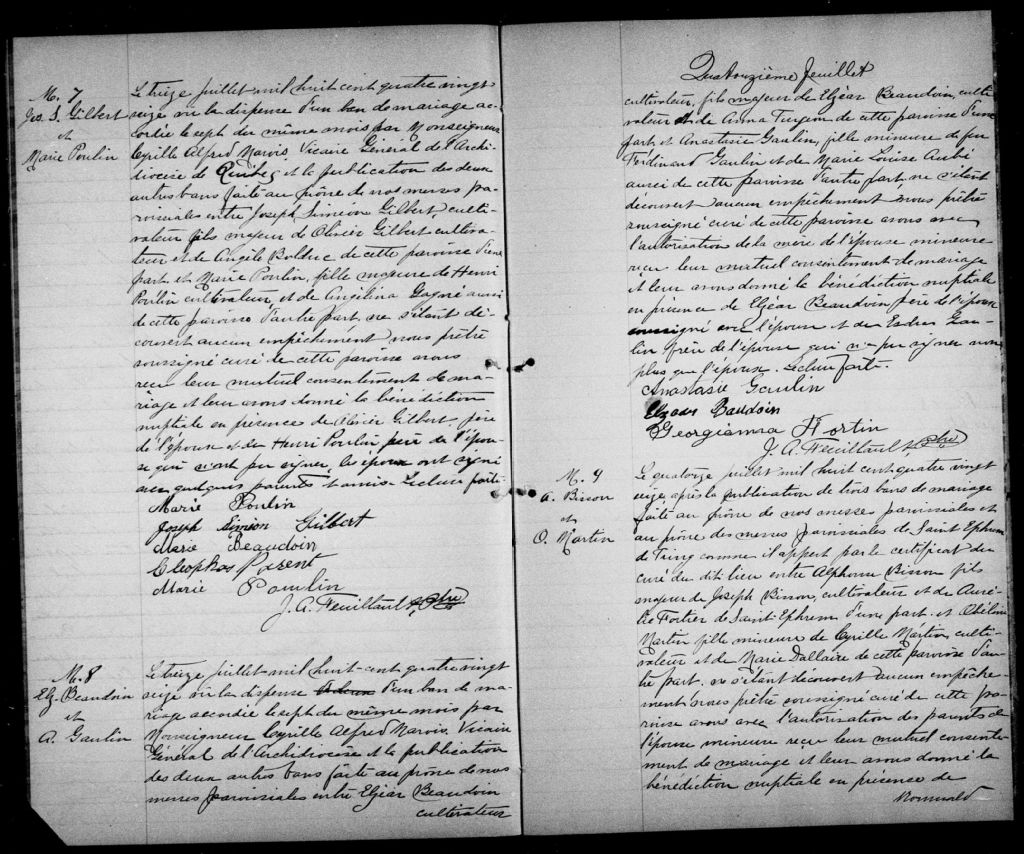 M. 7
Jos. S. Gilbert
et
Marie Poulin
Le treize juillet mil huit cent quatre vingt
seize vu la dispense d'un ban de mariage ac-
cordée le sept du même mois par Monseigneur
Cyrille Alfred Marois, Vicaire Général de l'Archi-
diocèse de Québec et la publication des deux
autres bans faite au prône de nos messes pa-
roissiales entre Joseph Siméon Gilbert, culti-
vateur fils majeur de Olivier Gilbert cultiva-
teur et de Angèle Bolduc de cette paroisse d'une
part et Marie Poulin, fille majeure de Henri
Poulin cultivateur, et de Angélina Gagné aussi
de cette paroisse d'autre part, ne s'étant dé-
couvert aucun empêchement nous prêtre
soussigné curé de cette paroisse avons
reçu leur mutuel consentement de ma-
riage et leur avons donné la bénédiction
nuptiale en présence de Olivier Gilbert père
de l'époux et de Henri Poulin père de l'épou-
se qui n'ont pu signer, les époux ont signé
avec quelques parents et amis. Lecture faite.
Marie Poulin
Joseph Siméon Gilbert
Marie Beaudoin
Cléophas Parent
Marie Poulin
J. A. Feuiltault Ptre
M. 8
Elz. Beaudoin
et
A. Gaulin
Le treize juillet mil huit-cent quatre vingt
seize vu la dispense d'un ban de ma-
riage accordée le sept du même mois par
Monseigneur Cyrille Alfred Marois, Vicaire
Général de l'Archidiocèse et la publication
des deux autres bans faite au prône de nos
messes paroissiales entre Elzéar Beaudoin
cultivateur
Quatorzième feuillet
cultivateur, fils majeur de Elzéar Beaudoin, culti-
vateur et de Anna Turgeon de cette paroisse d'une
part, et Anastasie Gaulin, fille mineure de feu
Ferdinand Gaulin et de Marie Louise Aubé
aussi de cette paroisse d'autre part, ne s'étant
découvert aucun empêchement nous prêtre
soussigné curé de cette paroisse avons avec
l'autorisation de la mère de l'épouse mineure
reçu leur mutuel consentement de mariage
et leur avons donné la bénédiction nuptiale
en présence de Elzéar Beaudoin père de l'époux
soussigné avec l'épouse et de Gau-
lin frère de l'épouse qui n'a pu signer non
plus que l'époux. Lecture faite.
Anastasie Gaulin
Elzear Baudoin
Georgianna Fortin
J. A. Feuiltault Ptre
M. 9
A. Bisson
et
O. Martin
Le quatorze juillet mil huit cent quatre vingt
seize après la publication de trois bans de mariage
faite au prône de nos messes paroissiales et
au prône des messes paroissiales de Saint Ephrem
de Tring comme il appert par le certificat du
curé du dit lieu entre Alphonse Bisson fils
majeur de Joseph Bisson, cultivateur et de Auré-
lie Fortier de Saint-Ephrem d'une part et Obéline
Martin fille mineure de Cyrille Martin, culti-
vateur et de Marie Dallaire de cette paroisse d'au-
tre part. ne s'étant découvert aucun empêche-
ment nous prêtre soussigné curé de cette pa-
roisse avons avec l'autorisation des parents de
l'épouse mineure reçu leur mutuel consente-
ment de mariage et leur avons donné la
bénédiction nuptiale en présence de
Romuald